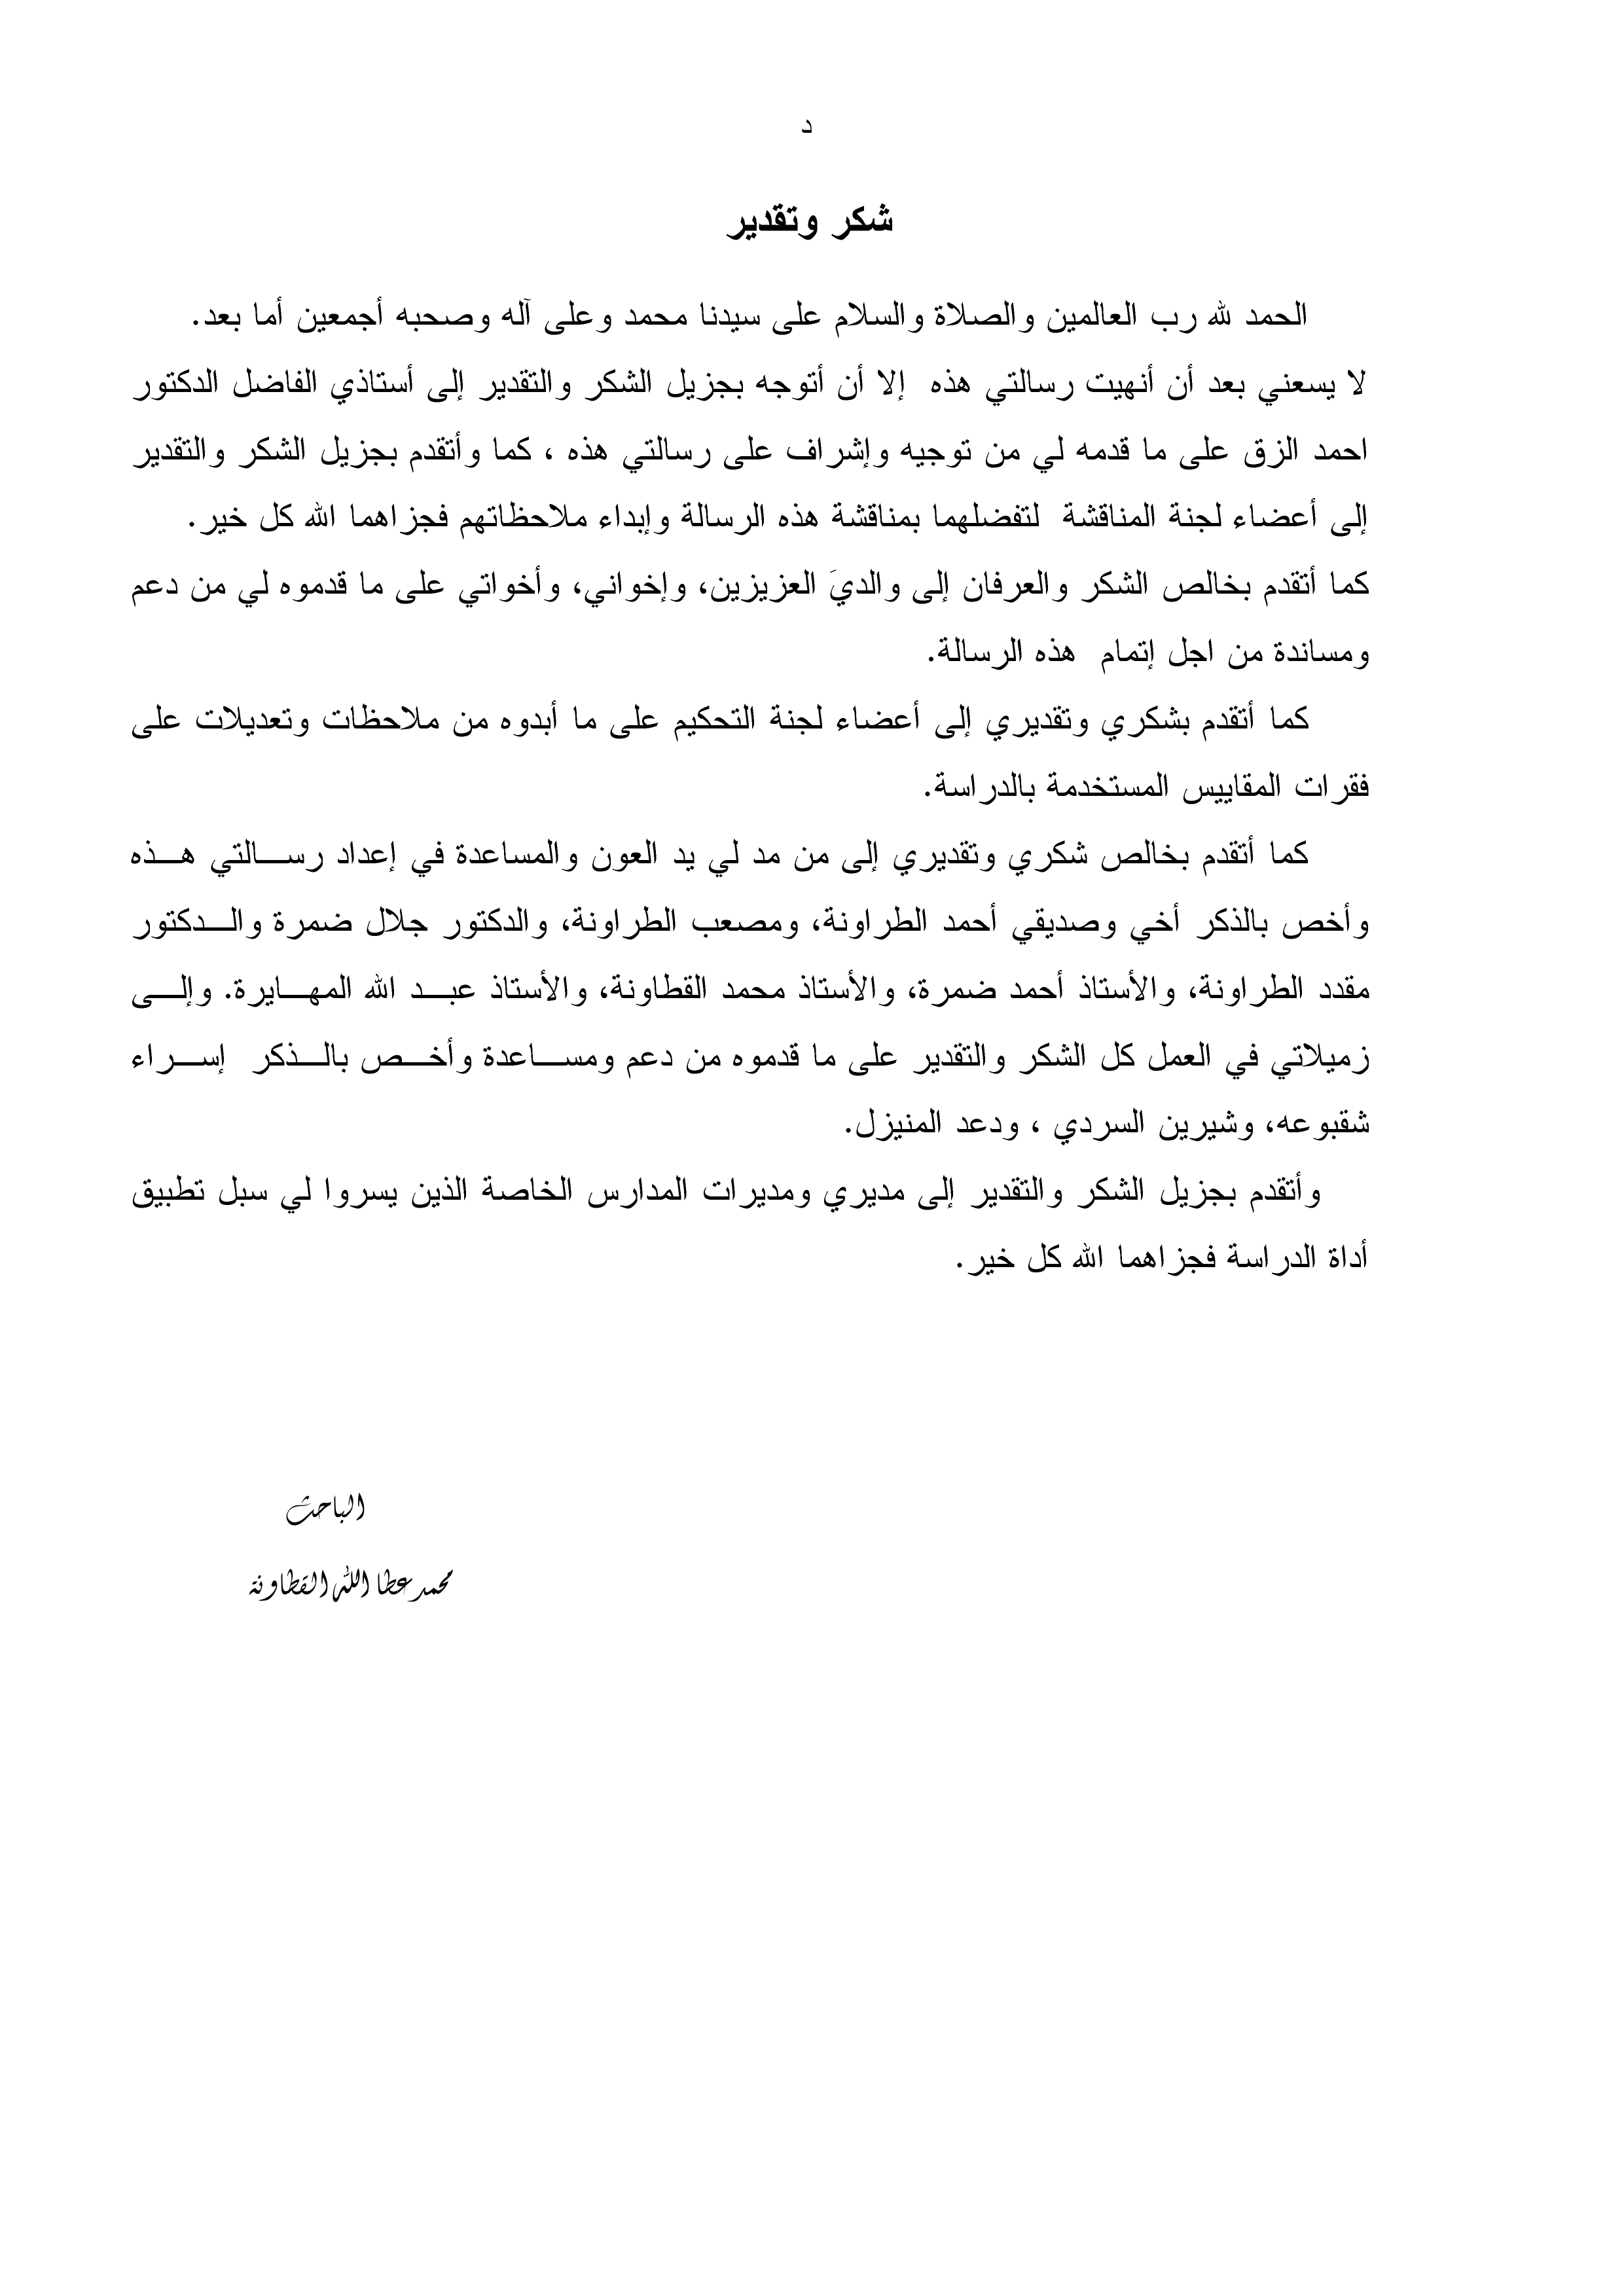 د
شكر وتقدير
الحمد لله رب العالمين والصلاة والسلام على سيدنا محمد وعلى آله وصحبه أجمعين أما بعد.
لا يسعني بعد أن أنهيت رسالتي هذه إلا أن أتوجه بجزيل الشكر والتقدير إلى أستاذي الفاضل الدكتور
احمد الزق على ما قدمه لي من توجيه وإشراف على رسالتي هذه ، كما وأتقدم بجزيل الشكر والتقدير
إلى أعضاء لجنة المناقشة لتفضلهما بمناقشة هذه الرسالة وإبداء ملاحظاتهم فجزاهما الله كل خير.
كما أتقدم بخالص الشكر والعرفان إلى والديَ العزيزين، وإخواني، وأخواتي على ما قدموه لي من دعم
ومساندة من اجل إتمام هذه الرسالة.
كما أتقدم بشكري وتقديري إلى أعضاء لجنة التحكيم على ما أبدوه من ملاحظات وتعديلات على
فقرات المقاييس المستخدمة بالدراسة.
كما أتقدم بخالص شكري وتقديري إلى من مد لي يد العون والمساعدة في إعداد رســالتي هــذه
وأخص بالذكر أخي وصديقي أحمد الطراونة، ومصعب الطراونة، والدكتور جلال ضمرة والــدكتور
مقدد الطراونة، والأستاذ أحمد ضمرة، والأستاذ محمد القطاونة، والأستاذ عبــد الله المهــايرة. وإلــى
زميلاتي في العمل كل الشكر والتقدير على ما قدموه من دعم ومســاعدة وأخــص بالــذكر إســراء
شقبوعه، وشيرين السردي ، ودعد المنيزل.
وأتقدم بجزيل الشكر والتقدير إلى مديري ومديرات المدارس الخاصة الذين يسروا لي سبل تطبيق
أداة الدراسة فجزاهما الله كل خير.
الباحث
محمد عطا الله القطاونة